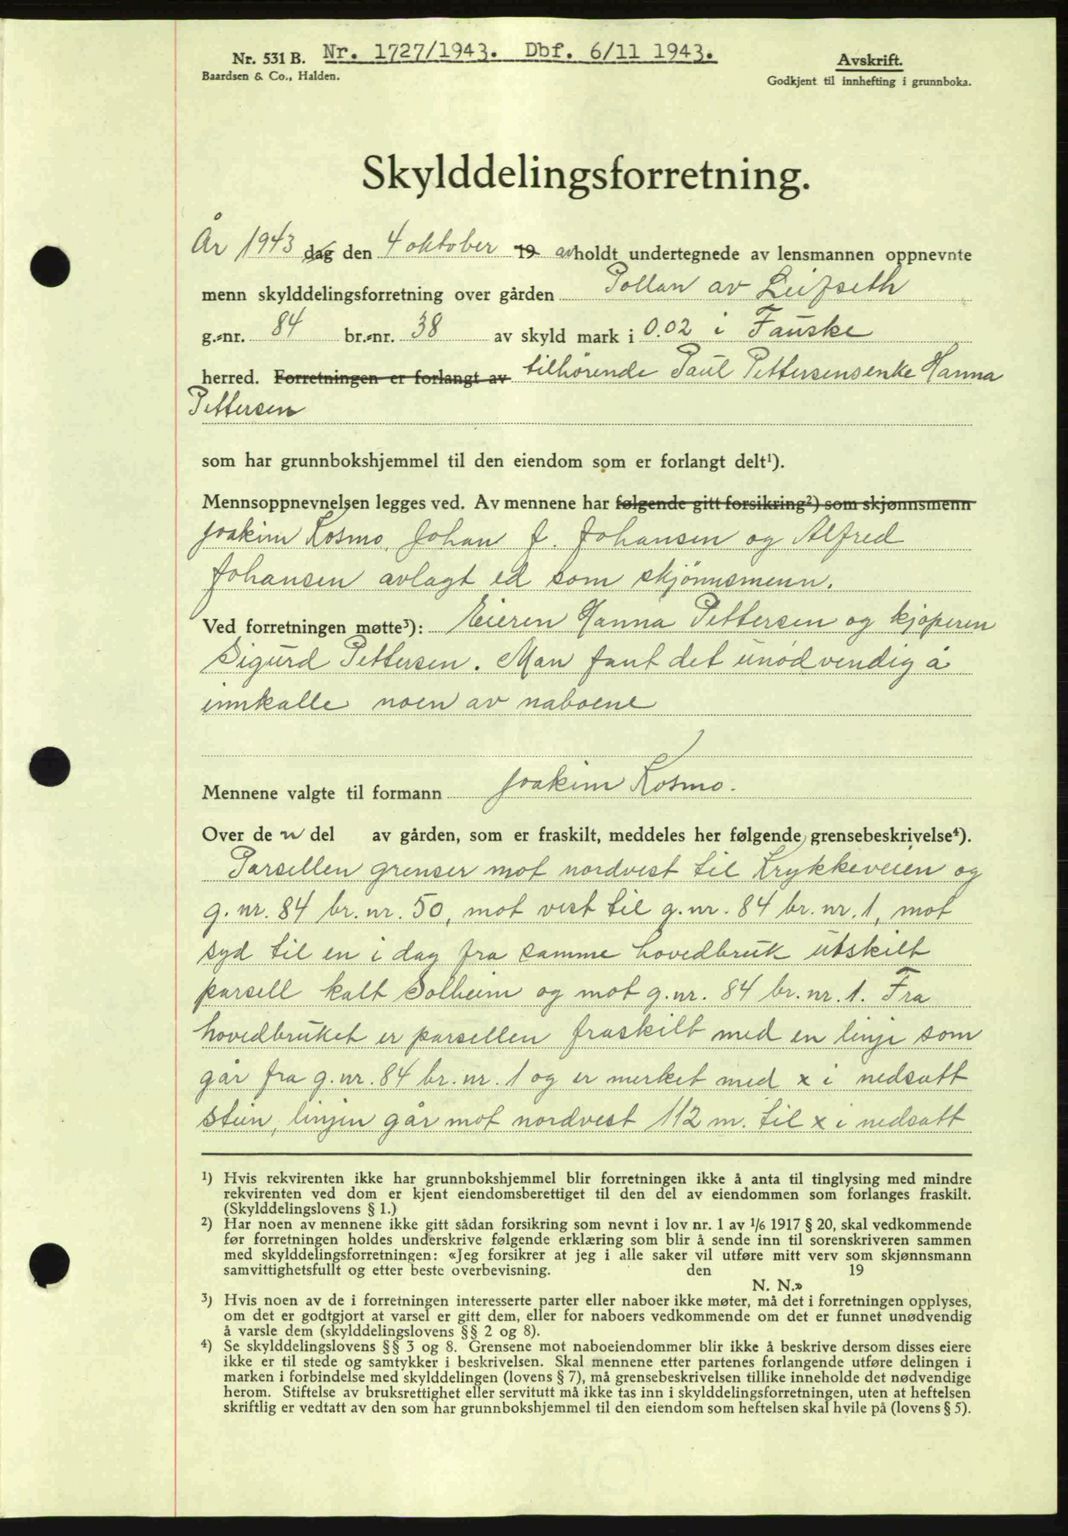 Nr. 531 B. Nr. 1727/1943. Dbf. 6/11 1943.
Baardsen & Co., Halden.
Avskrift.
Godkjent til innhefting i grunnboka.
Skylddelingsforretning.
År 1943 dag den 4 oktober 19 avholdt undertegnede av lensmannen oppnevnte
menn skylddelingsforretning over gården Pollan av Leifseth
g.-nr. 84 br.-nr. 38 av skyld mark i 0.02 i Fauske
herred. Forretningen er forlangt av tilhørende Paul Pettersens enke Hanna
Pettersen
som har grunnbokshjemmel til den eiendom som er forlangt delt¹).
Mennsoppnevnelsen legges ved. Av mennene har følgende gitt forsikring²) som skjønnsmenn
Joakim Kosmo, Johan J. Johansen og Alfred
Johansen avlagt ed som skjönnsmenn.
Ved forretningen møtte³): Eieren Hanna Pettersen og kjöperen
Sigurd Pettersen. Man fant det unödvendig å
innkalle noen av naboene
Mennene valgte til formann Joakim Kosmo.
Over de n del av gården, som er fraskilt, meddeles her følgende grensebeskrivelse⁴).
Parsellen grenser mot nordvest til Krykkeveien og
g.nr. 84 br.nr. 50, mot vest til g.nr. 84 br.nr. 1, mot
syd til en i dag fra samme hovedbruk utskilt
parsell kalt Solheim og mot g.nr. 84 br.nr. 1. Fra
hovedbruket er parsellen fraskilt med en linje som
går fra g.nr. 84 br.nr. 1 og er merket med x i nedsatt
stein, linjen går mot nordvest 112 m. til x i nedsatt
¹) Hvis rekvirenten ikke har grunnbokshjemmel blir forretningen ikke å anta til tinglysing med mindre
rekvirenten ved dom er kjent eiendomsberettiget til den del av eiendommen som forlanges fraskilt.
(Skylddelingslovens § 1.)
²) Har noen av mennene ikke gitt sådan forsikring som nevnt i lov nr. 1 av 1/6 1917 § 20, skal vedkommende
før forretningen holdes underskrive følgende erklæring som blir å sende inn til sorenskriveren sammen
med skylddelingsforretningen: «Jeg forsikrer at jeg i alle saker vil utføre mitt verv som skjønnsmann
samvittighetsfullt og etter beste overbevisning. den 19
N. N.»
³) Hvis noen av de i forretningen interesserte parter eller naboer ikke møter, må det i forretningen opplyses,
om det er godtgjort at varsel er gitt dem, eller for naboers vedkommende om det er funnet unødvendig
å varsle dem (skylddelingslovens §§ 2 og 8).
⁴) Se skylddelingslovens §§ 3 og 8. Grensene mot naboeiendommer blir ikke å beskrive dersom disses eiere
ikke er til stede og samtykker i beskrivelsen. Skal mennene etter partenes forlangende utføre delingen i
marken i forbindelse med skylddelingen (lovens § 7), må grensebeskrivelsen tillike inneholde det nødvendige
herom. Stiftelse av bruksrettighet eller servitutt må ikke tas inn i skylddelingsforretningen, uten at heftelsen
skriftlig er vedtatt av den som har grunnbokshjemmel til den eiendom som heftelsen skal hvile på (lovens § 5).